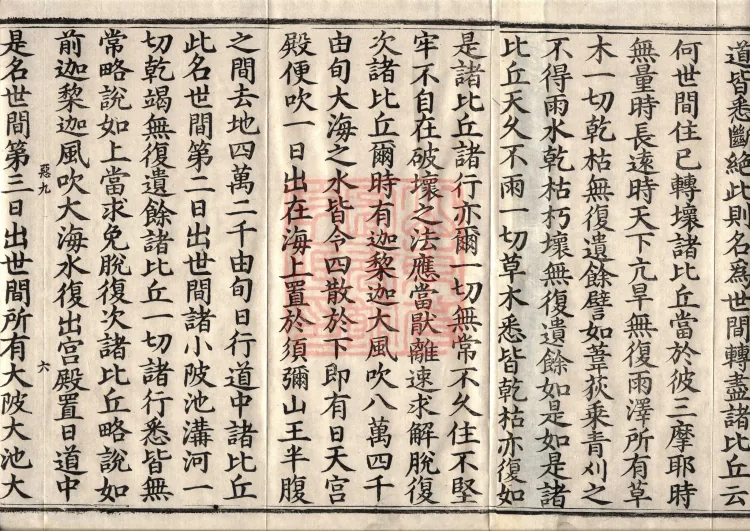 道皆悉斷絶此則名為世間轉盡諸比丘云
何世間住已轉壞諸比丘當於彼三摩耶時
無量時長遠時天下亢旱無復雨澤所有草
木一切乾枯無復遺餘譬如葦荻乘青刈之
不得雨水乾枯朽壞無復遺餘如是如是諸
比丘天久不雨一切草木悉皆乾枯亦復如
是諸比丘諸行亦爾一切無常不久住不堅
牢不自在破壞之法應當猒離速求解脫復
次諸比丘爾時有迦棃迦大風吹八萬四千
由旬大海之水皆令四散於下即有日天宮
殿便吹一日出在海上置於須彌山王半腹
之間去地四萬二千由旬日行道中諸比丘
此名世間第二日出世間諸小陂池溝河一
切乾竭無復遺餘諸比丘一切諸行悉皆無
常略說如上當求免脫復次諸比丘略說如
惡九 六
前迦棃迦風吹大海水復出宮殿置日道中
是名世間第三日出世間所有大陂大池大